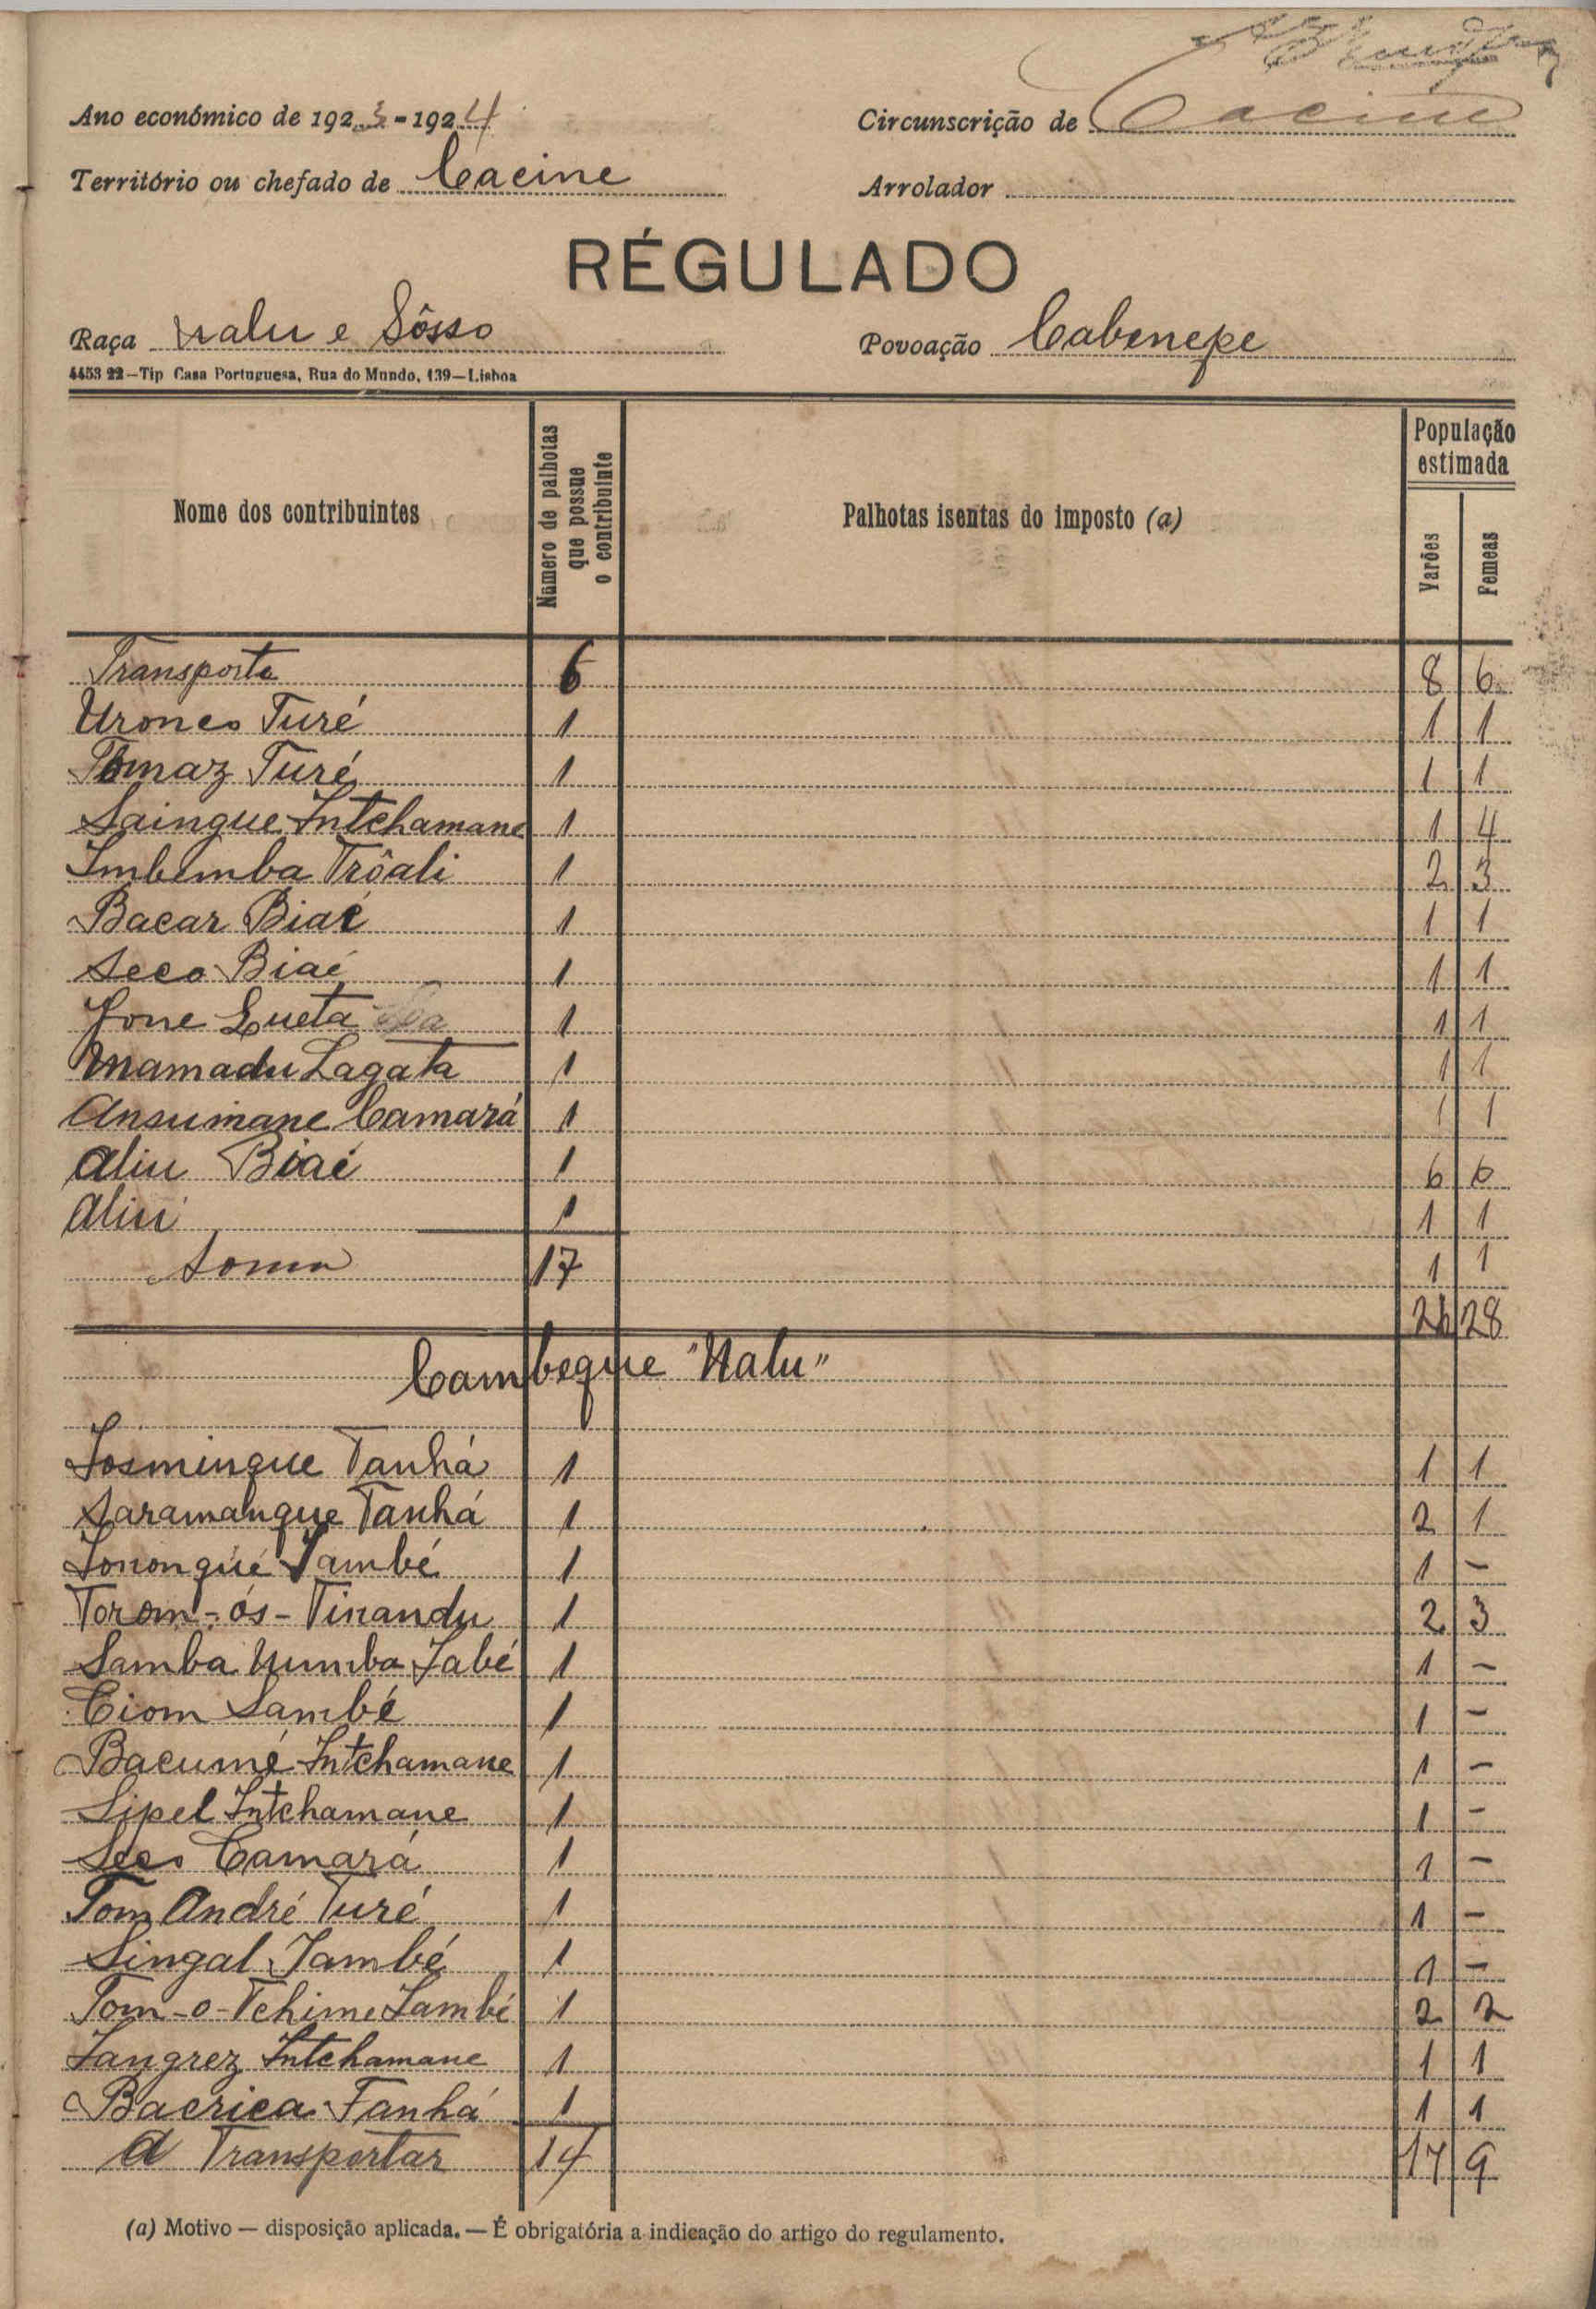 Ano económico de 1923-1924
Circunscrição de Cacine
Território ou chefado de Cacine
Arrolador
RÉGULADO
Raça Nalu e Sôsso
Povoação Cabenepe
4453 22—Tip Casa Portuguesa, Rua do Mundo, 139—Lisboa
Nome dos contribuintes
Número de palhotas que possue o contribuinte
Palhotas isentas do imposto (a)
População estimada
Varões Femeas
Transporte 6 8 6
Uronco Turé 1 1 1
Tomaz Turé 1 1 1
Saingue Intchamane 1 1 4
Imbemba Trôali 1 2 3
Bacar Biaé 1 1 1
Seco Biaé 1 1 1
Jone Lueta 1 1 1
Mamadu Lagata 1 1 1
Ansumane Camará 1 1 1
Aliu Biaé 1 6 6
Aliu 1 1 1
Soma 17 1 1
26 28
Cambeque "Nalu"
Josmingue Tanhá 1 1 1
Saramangue Tanhá 1 2 1
Sonongué Sambé 1 1 –
Torom-ós-Tinandu 1 2 3
Samba Numba Jabé 1 1 –
Ciom Sambé 1 1 –
Bacumé Intchamane 1 1 –
Sipel Intchamane 1 1 –
Seco Camará 1 1 –
Tom André Turé 1 1 –
Singal Jambé 1 1 –
Tom-o-Tchime Sambé 1 2 2
Sangrez Intchamane 1 1 1
Bacrica Fanhá 1 1 1
A Transportar 14 17 9
(a) Motivo — disposição aplicada. — É obrigatória a indicação do artigo do regulamento.